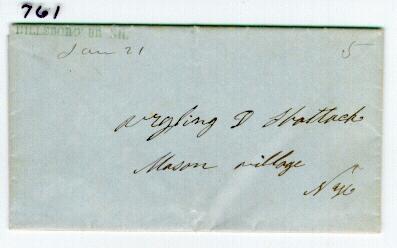 761
HILLSBORO' BR. NH.
Jan 21
5
D Shattuck
Mason village
N H